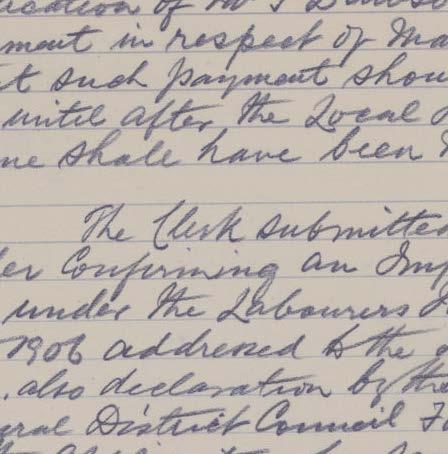 ication of Mr J
ment in respect of Ma
t such payment shou
until after the Local
ne shall have been
The Clerk submitted
er Confirming an Imp
under the Labourers A
1906 addressed to the
also declaration by the
ural District Council